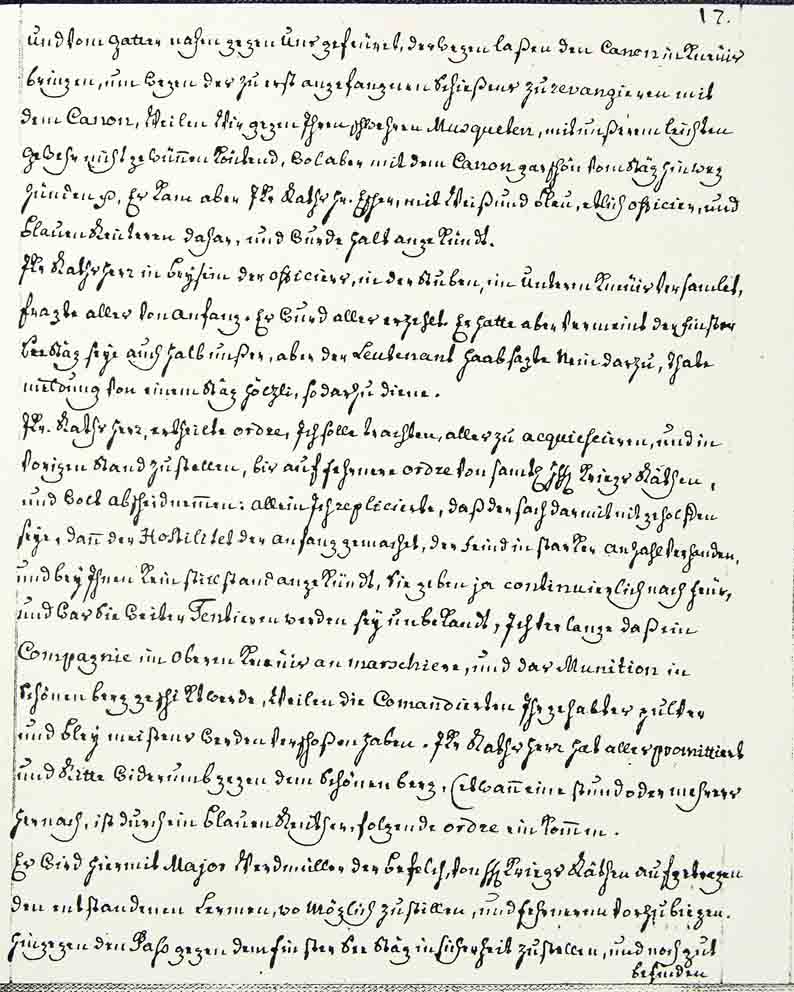 17.
und vom gatter nahen gegen Uns gefeüret, deswegen laßen den Canon in Kneüis
bringen, um wegen des zu erst angefangenen Schießens zu revangieren mit
dem Canon, Weilen Wir gegen Ihren schwehren Musqueten, mit unßerem leichten
gewehr nicht gewünnen köntend, wol aber mit dem Canon gar schön vom Stäg hinweg
zünden p. Er kam aber Jkr Rathshr. Escher, mit Weiß und blau, etlich officier, und
blauen Reüteren dahar, und wurde halt angekündt.
Jkr Rathsherr in beysein der officiers, in der Stuben, im Unteren Kneüis versamlet,
fragte alles von anfang. Es wurd alles erzehlt. Er hatte aber vermeint der finster
See Stäg seye auch halb unßer, aber der Leutenant Haab sagte Nein darzu, thate
meldung von einem Stäg hölzli, so darzu diene.
Jkr. Rathsherr, ertheilte ordre, Ich solle trachten, alles zu acquiescieren, und in
vorigen Stand zu stellen, bis auf fehrnere ordre von samtl. Hh Kriegs Räthen,
und wolt abscheid nemmen: allein Ich replicierte, daß der sach darmit nit geholffen
seye, dann der Hostilitet der anfang gemachet, der feind in starker anzahl verhanden,
und bey Ihnen kein stillstand angekündt, Sie geben ja continuierlich nach feür,
und was Sie weiters Tentieren werden sey unbekandt, Ich verlange daß ein
Compagnie im Oberen Kneüis an marschiere, und das Munition in
Schönenberg geschikt werde, Weilen die Comandierten Ihr gehabtes pulver
und bley meistens werden verschoßen haben. Jkr Rathsherr hat alles promittiert
und Ritte widerumb gegen dem Schönenberg. Etwann eine stund oder mehrers
hernach, ist durch ein blauen Reüther, folgende ordre ein kommen.
Es wird hiermit Major Werdmüller der befelch, von Hh Kriegs Räthen aufgetragen
den entstandenen Lermen, wo möglich zu stillen, und fehrnerem vorzubiegen.
Hingegen den Paß gegen dem finster See Stäg in sicherheit zu stellen, und noch gut
befinden